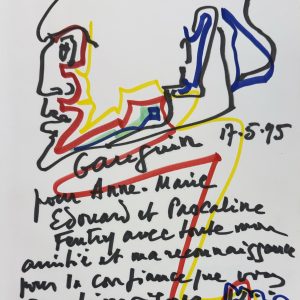 17.5.95
pour Anne-Marie
Edouard et Pascaline
avec toute mon
amitié et ma reconnaissance
pour la confiance que vous